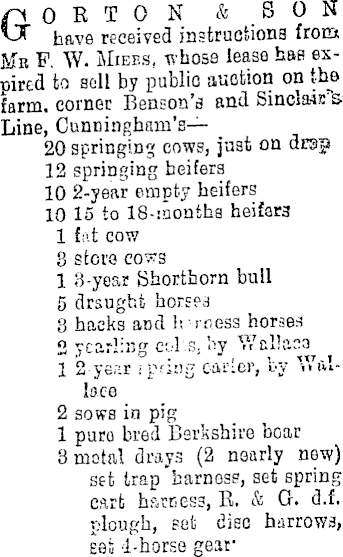 GORTON & SON
have received instructions from
Mr F. W. Miers, whose lease has ex-
pired to sell by public auction on the
farm, corner Benson's and Sinclair's
Line, Cunningham's—
20 springing cows, just on drop
12 springing heifers
10 2-year empty heifers
10 15 to 18-months heifers
1 fat cow
3 store cows
1 3-year Shorthorn bull
5 draught horses
3 hacks and harness horses
2 yearling colts, by Wallace
1 2-year spring carter, by Wal-
lace
2 sows in pig
1 pure bred Berkshire boar
3 metal drays (2 nearly new)
set trap harness, set spring
cart harness, R. & G. d.f.
plough, set disc harrows,
set 4-horse gear